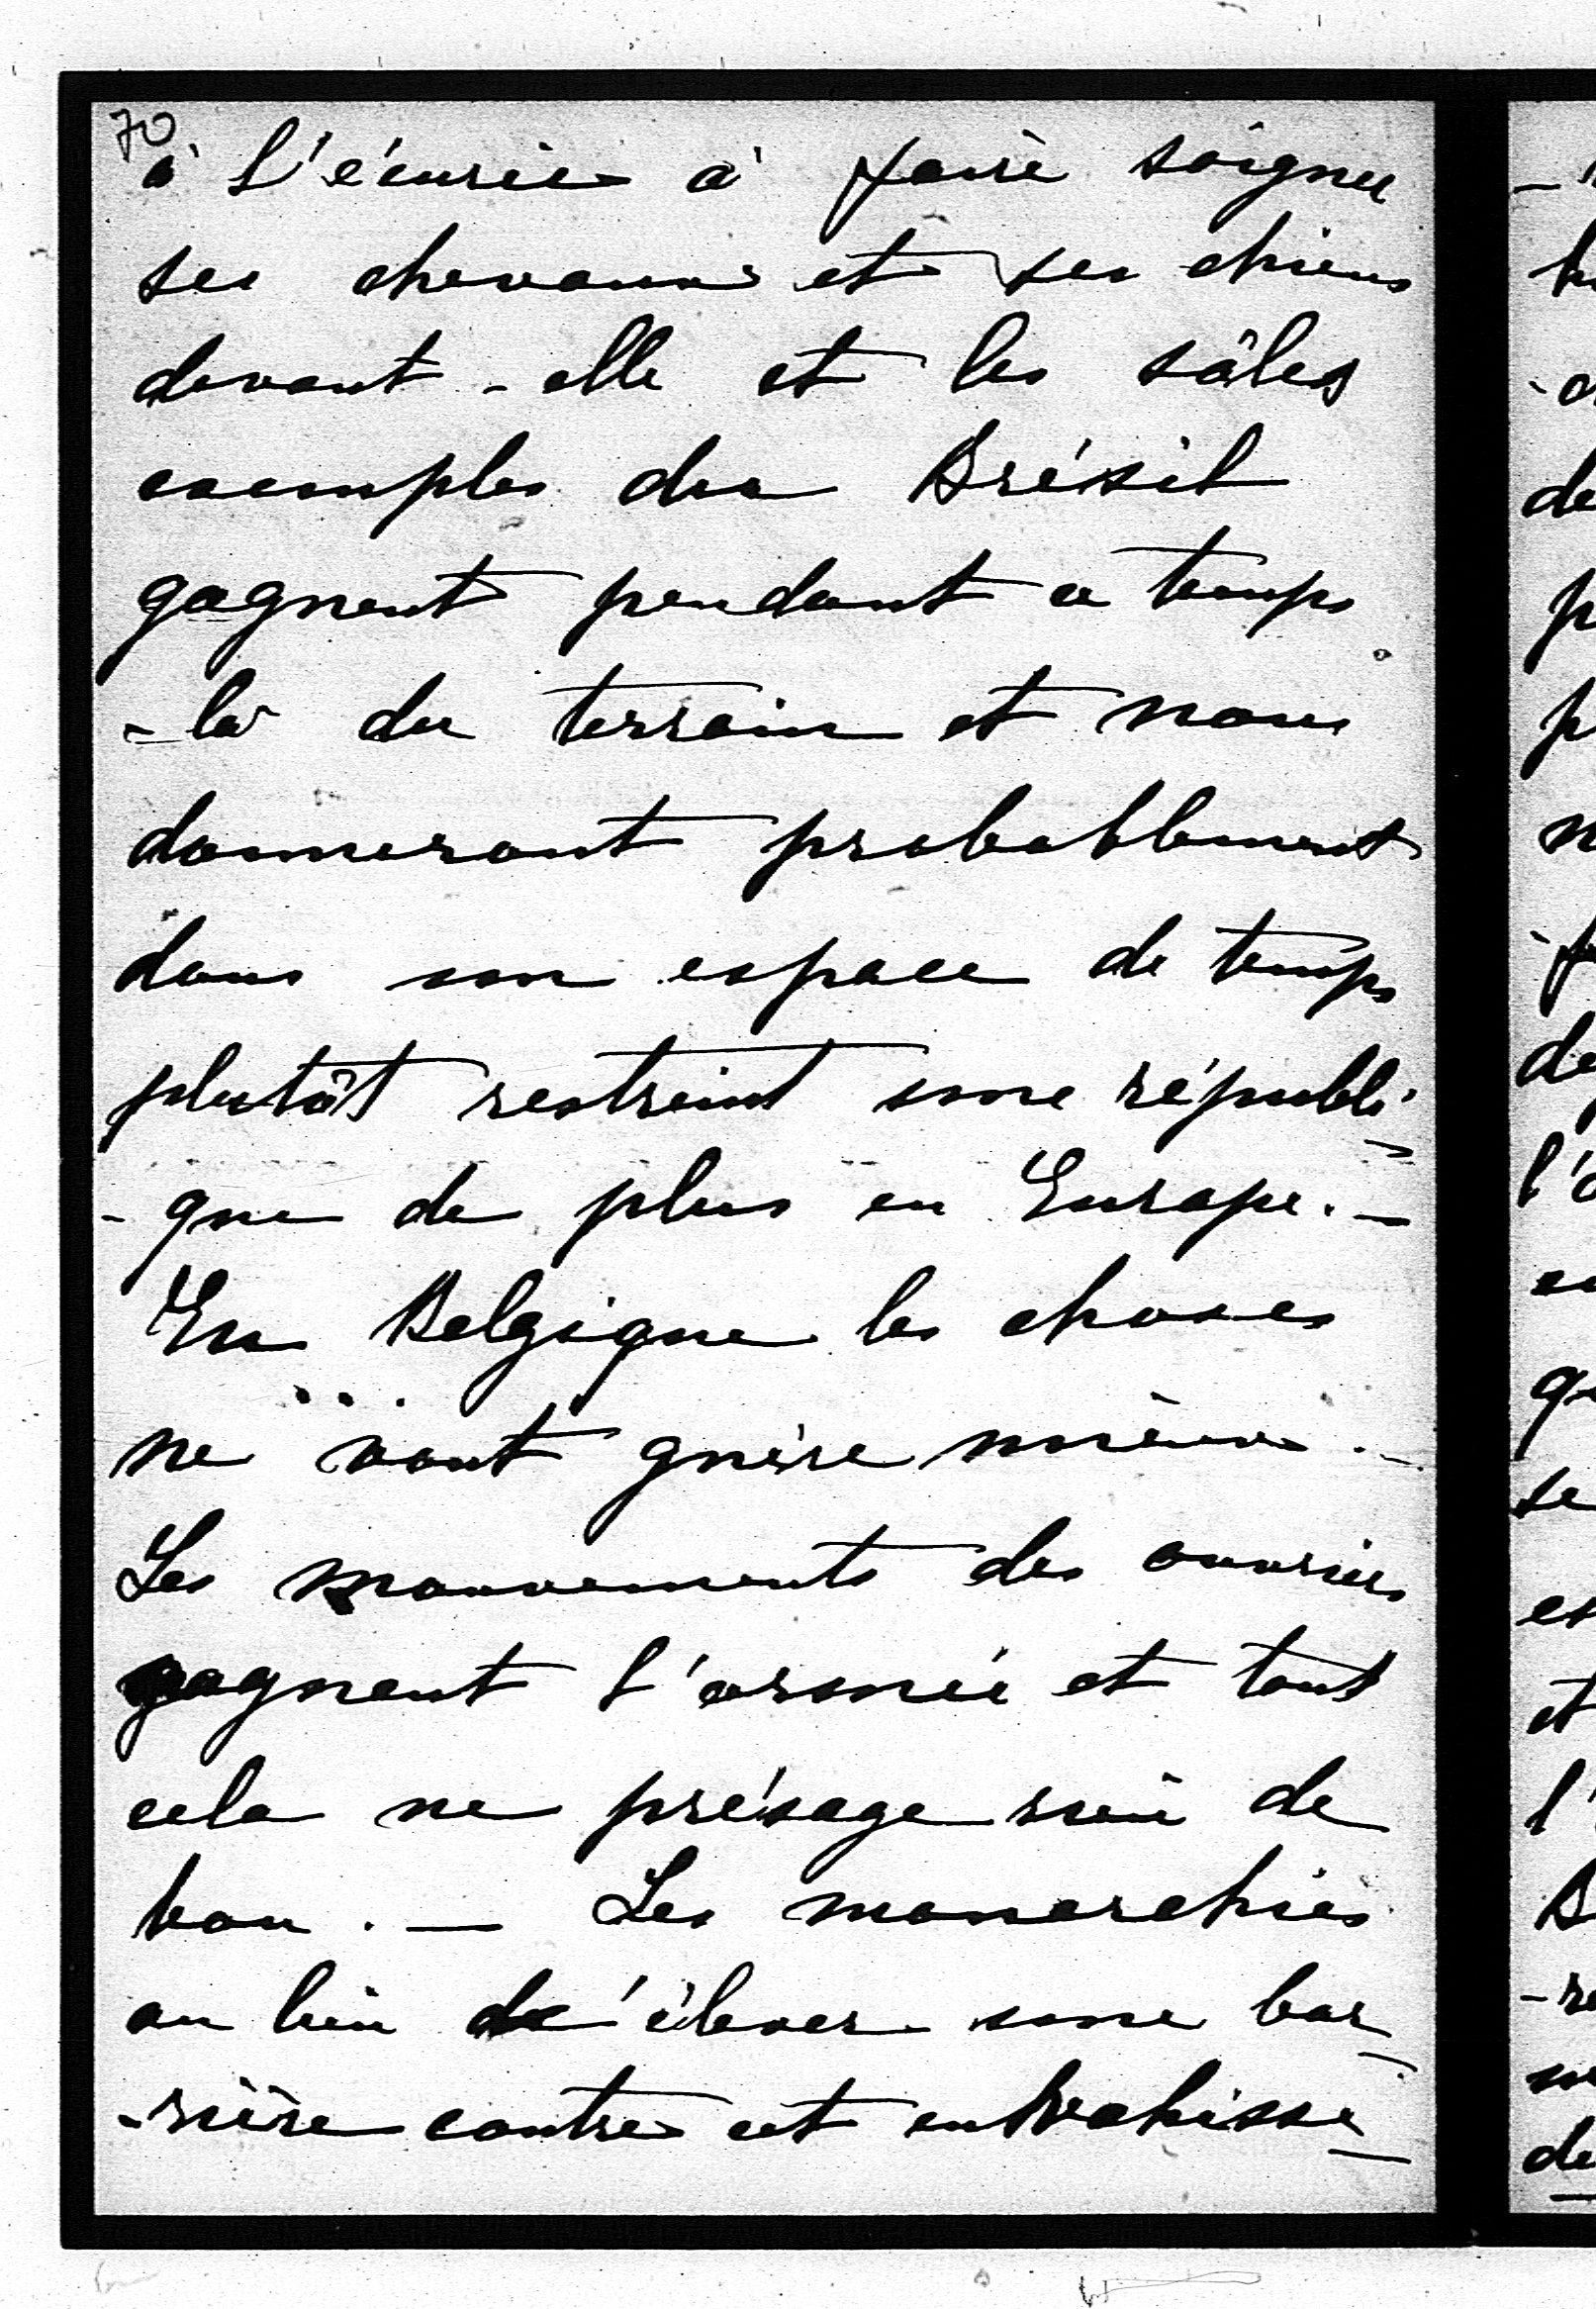 70
à l'écurie à faire soigner
ses chevaux et ses chiens
devant-elle et les sâles
exemples du Brésil
gagnent pendant ce temps
-là du terrain et nous
donneront probablement
dans un espace de temps
plutôt restreint une républi-
-que de plus en Europe. —
En Belgique les choses
ne vont guère mieux. —
Les mouvements des ouvriers
gagnent l'armée et tout
cela ne présage rien de
bon. — Les monarchies
au lieu d'élever une bar-
-rière contre cet envahisse-